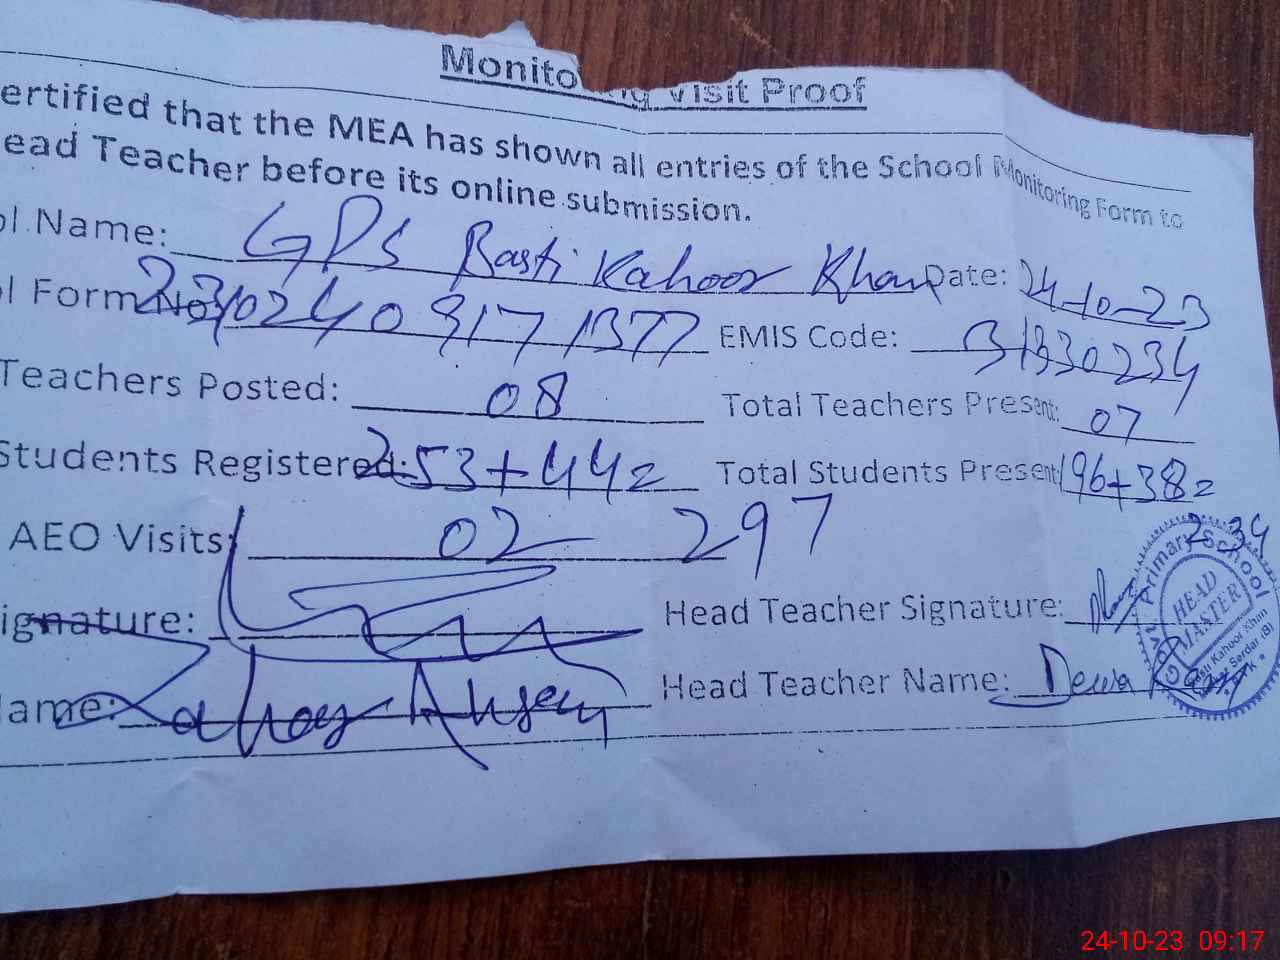 Monito ng Visit Proof
ertified that the MEA has shown all entries of the School Monitoring Form to
ead Teacher before its online submission.
ol Name: GPS Basti Kahoor Khan Date: 24-10-23
ol Form No: EMIS Code: 31330234
Teachers Posted: 08 Total Teachers Present: 07
Students Registered: 253+44= Total Students Present 196+38=
297 234
AEO Visits: 02
ignature: Head Teacher Signature:
ame: Head Teacher Name: Dewa
Primary School
HEAD MASTER
Kahoor Khan
24-10-23 09:17